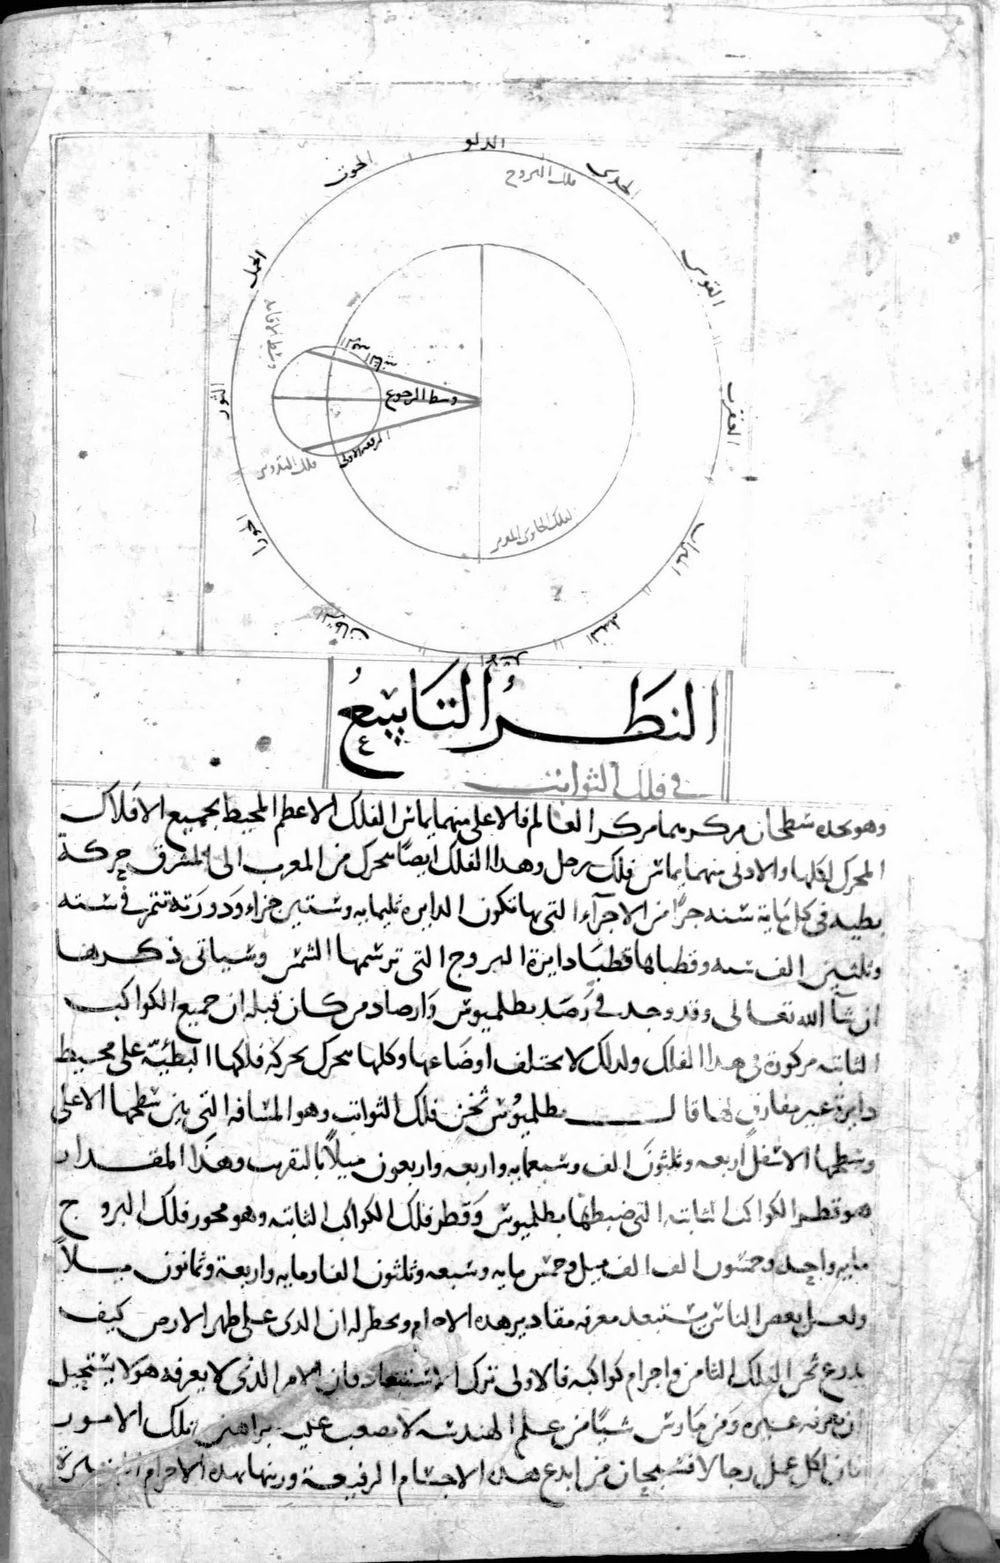 الدلو
الحوت
الجدي
فلك البروج
الحمل
القوس
وسط الاقامه
الثور
وسط الرجوع
العقرب
فلك التدوير
الجوزا
الفلك الحاوي
الميزان
السرطان
السنبله
الاسد
النظر التاسع
في فلك الثوابت
وهو يحده سطحان مركزهما مركز العالم فالاعلى منهما يماس الفلك الاعظم المحيط بجميع الافلاك
المحرك لكلها والادنى منهما يماس فلك زحل وهذا الفلك ايضًا يتحرك من المغرب الى المشرق حركة
بطيه في كل مائة سنه جزًا من الاجزآء التي بها تكون الدايره ثلثمايه وستين جزاء ودورته تتم في سته
وثلثين الف سنه وقطباها قطبا دايرة البروج التي ترسمها الشمس وسياتى ذكرها
ان شآ الله تعالى وقد وجد في رَصَد بطلميوس وارصاد من كان قبله ان جميع الكواكب
الثابته مركوزة في هذا الفلك ولذلك لا يختلف اوضاعها وكلها يتحرك بحركة فلكها البطئيّة على محيط
دايرة غير مفارق لها قال بطلميوس ثخن فلك الثوابت وهو المسافه التي بين سطحها الاعلى
وسطحها الاسفل اربعه وثلثون الف وسبعمايه واربعه واربعون ميلاً بالتقريب وهذا المقدار
هو قطر الكواكب الثابته التي ضبطها بطلميوس وقطر فلك الكواكب الثابته وهو محور فلك البروج
مايه واحد وخمسون الف الف ميل وخمس مايه وسبعه وثلثون الفا ومايه واربعة وثمانون ميلاً
ولعل بعض الناس يستبعد معرفه مقادير هذه الاجرام ويخطر له ان الذي على ظهر الارض كيف
يدرع ثخن الفلك الثامن واجرام كواكبه فالاولى ترك الاستبعاد فان الامر الذي لا يعرفه هو لا يستحيل
ان يعرفه غيره ومن مارس شيًا من علم الهندسه لا يصعب عليه براهين تلك الامور
فان لكل عمل رجالا فسبحان من ابدع هذه الاجسام الرفيعة وزينها بهذه الاجرام